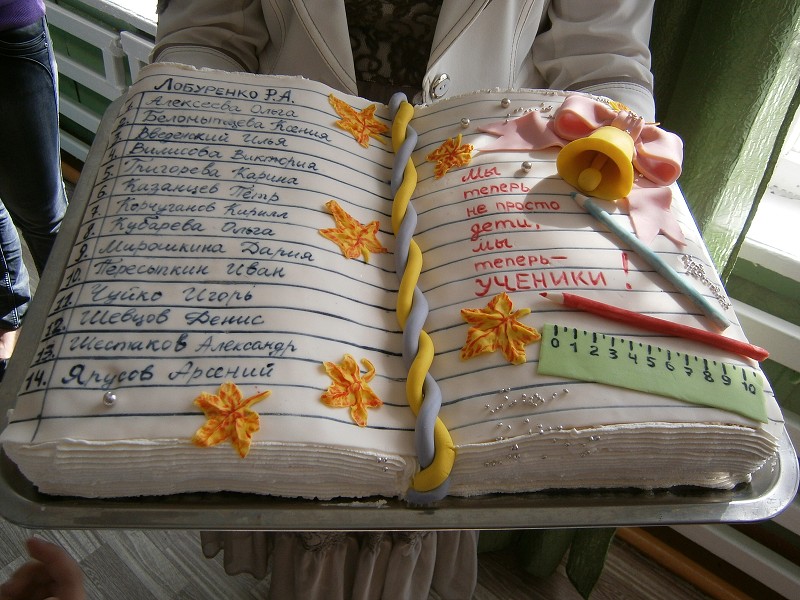 Лобуренко Р.А.
1. Алексеева Ольга
2. Белоныпцева Ксения
3. Введенский Илья
4. Вилисова Виктория
5. Григорева Карина
6. Казанцев Пётр
7. Корчуганов Кирилл
8. Кубарева Ольга
9. Мирошкина Дария
10. Пересыпкин Иван
11. Чуйко Игорь
12. Шевцов Денис
13. Шестаков Александр
14. Ярусов Арсений
Мы
теперь
не просто
дети,
мы
теперь–
УЧЕНИКИ!
0 1 2 3 4 5 6 7 8 9 10